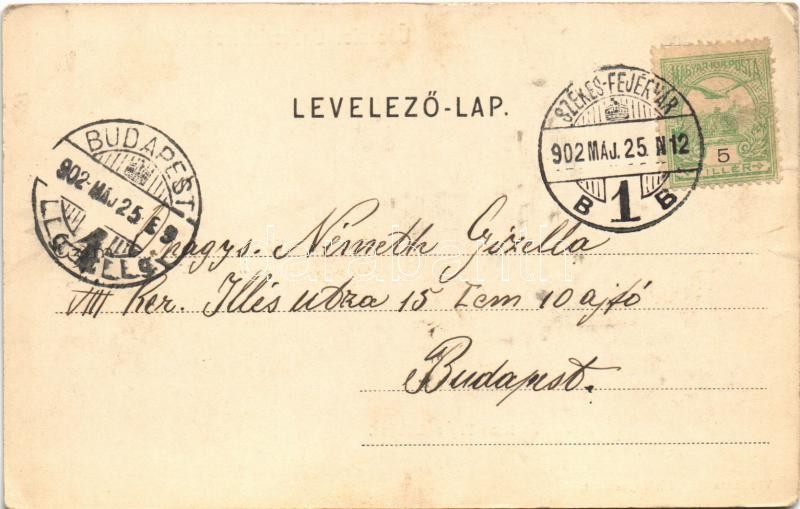 LEVELEZŐ-LAP.
SZÉKES-FEJÉRVÁR
902 MÁJ. 25. N12
B 1 B
MAGYAR KIR. POSTA
5
FILLÉR
BUDAPEST
902 MÁJ 25. E 9
nagys. Németh Gizella
VIII Ker. Illés utza 15 I em 10 ajtó
Budapest.